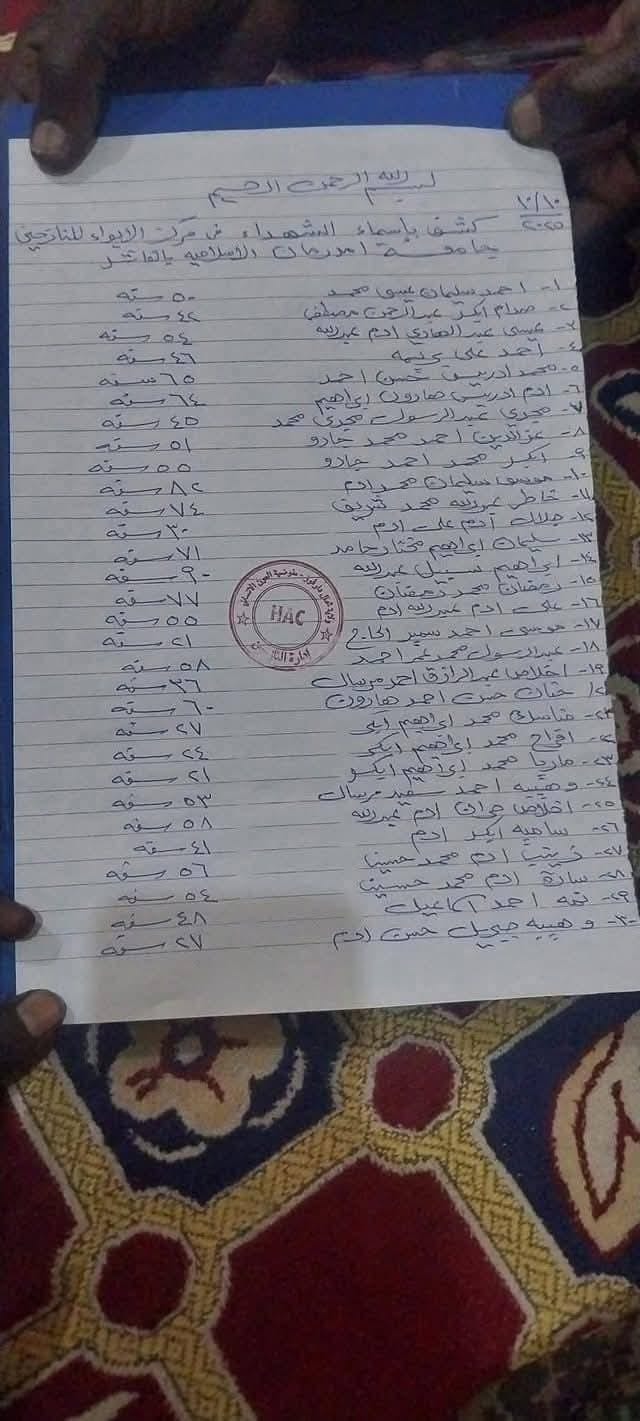 بسم الله الرحمن الرحيم
١٠/١٠
٢٠٢٥
كشف بإسماء الشهداء في مركز الايواء للنازحين
جامعة امدرمان الاسلاميه بالفاشر
١- احمد سليمان عيسى محمد ٥٠ سنه
٢- صدام ابكر عبدالرحمن مصطفى ٤٢ سنه
٣- عيسى عبدالهادي ادم عبدالله ٥٤ سنه
٤- احمد على ٤٦ سنه
٥- محمد ادريس حسن احمد ٦٥ سنه
٦- ادم ادريس هارون ابراهيم ٦٤ سنه
٧- مجدي عبدالرسول مجدي محمد ٤٥ سنه
٨- عزالدين احمد محمد جادو ٥١ سنه
٩- ابكر محمد احمد جادو ٥٥ سنه
١٠- موسى سليمان محمد ادم ٨٢ سنه
١١- خاطر عبدالله محمد شريف ٧٤ سنه
١٢- جلال آدم على ادم ٣٠ سنه
١٣- سليمان ابراهيم مختار حامد ٧١ سنه
١٤- ابراهيم عبدالله ٩٠ سنه
١٥- رمضان محمد رمضان ٧٧ سنه
١٦- على ادم عبدالله ادم ٥٥ سنه
١٧- موسى احمد الحاج ٢١ سنه
١٨- عبدالرسول محمد عمر احمد ٥٨ سنه
١٩- اخلاص عبدالرازق احمد مرسال ٣٦ سنه
٢٠- حنان حسن احمد هارون ٦٠ سنه
محمد ابراهيم ٢٧ سنه
٢٢- افراح محمد ابراهيم ٢٤ سنه
٢٣- ماريا محمد ابراهيم ٢١ سنه
٢٤- وهيبه احمد سعيد مرسال ٥٣ سنه
٢٥- اخلاص ادم عبدالله ٥٨ سنه
٢٦- ساميه ابكر ادم ٤١ سنه
٢٧- زينب ادم محمد حسين ٥٦ سنه
٢٨- سارة ادم محمد حسين ٥٤ سنه
٢٩- احمد اسماعيل ٤٨ سنه
٣٠- وهيبه جبريل حسن ادم ٢٧ سنه
ولاية شمال دارفور - مفوضية العون الإنساني
HAC